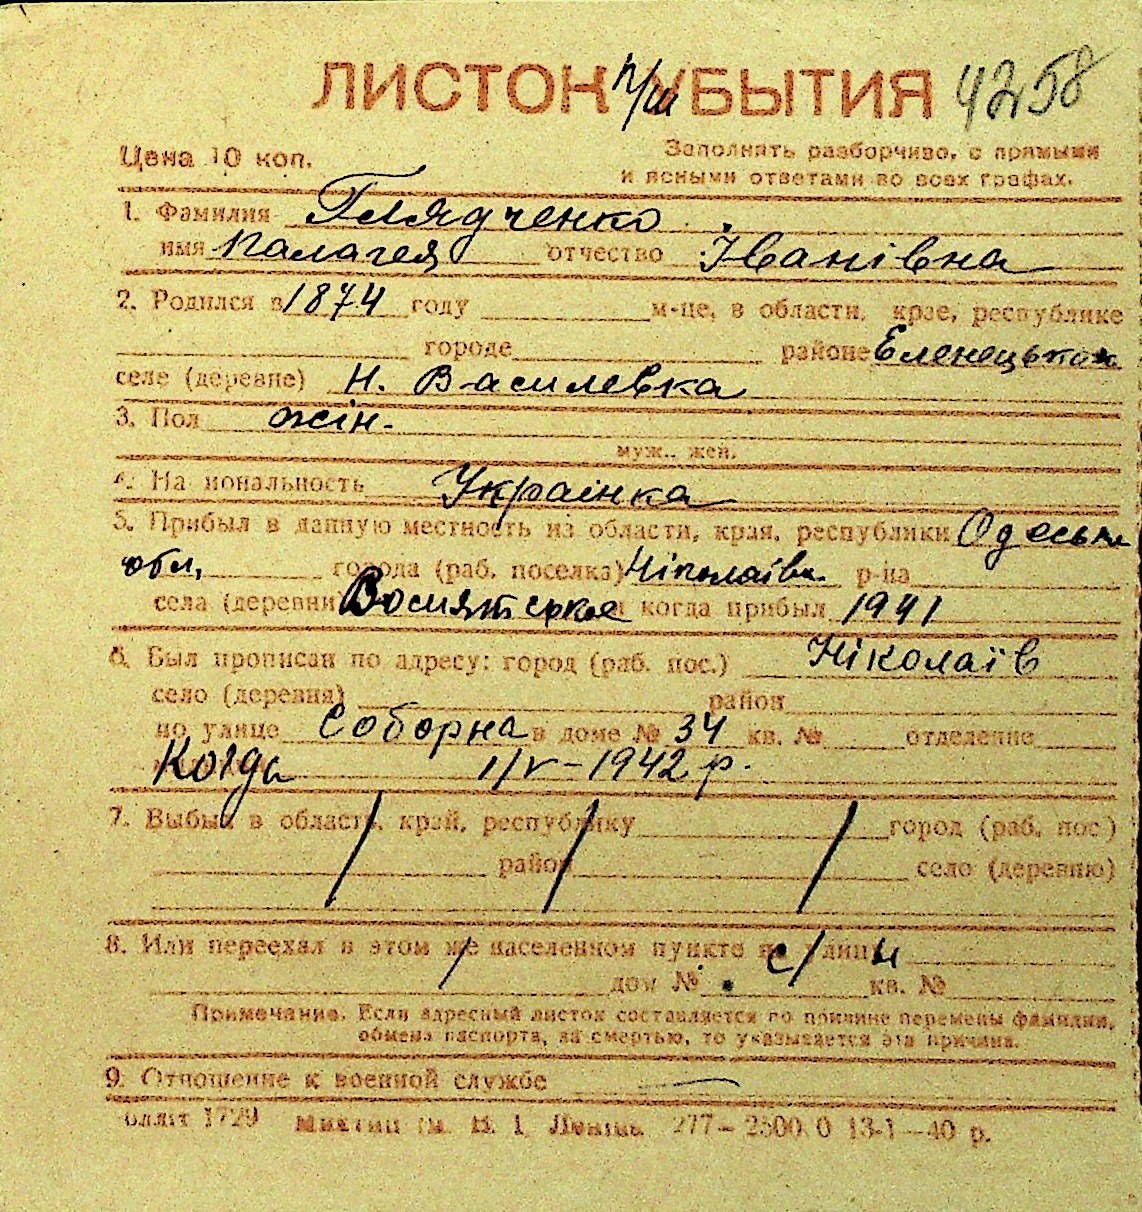 ЛИСТОК п/ш УБЫТИЯ 4258
Цена 10 коп.
Заполнять разборчиво, с прямыми
и ясными ответами во всех графах.
1. Фамилия Глядченко
имя Палагея отчество Іванівна
2. Родился в 1874 году м-це, в области, крае, республике
городе районе Еленецьком
селе (деревне) Н. Василевка
3. Пол жін.
муж., жен.
4. Национальность Украінка
5. Прибыл в данную местность из области, края, республики Одеська
обл, города (раб. поселка) р-на
села (деревни) и когда прибыл 1941
6. Был прописан по адресу: город (раб. пос.) Ніколаїв
село (деревня) район
по улице Соборна в доме № 34 кв. № отделение
Когда 1/V-1942 р.
7. Выбыл в область, край, республику город (раб. пос.)
район село (деревню)
8. Или переехал в этом же населенном пункте на улицы
дом № кв. №
Примечание. Если адресный листок составляется по причине перемены фамилии,
обмена паспорта, за смертью, то указывается эта причина.
9. Отношение к военной службе —
1729 Міктип ім. В. І. Леніна 277—2500.0 13-1—40 р.